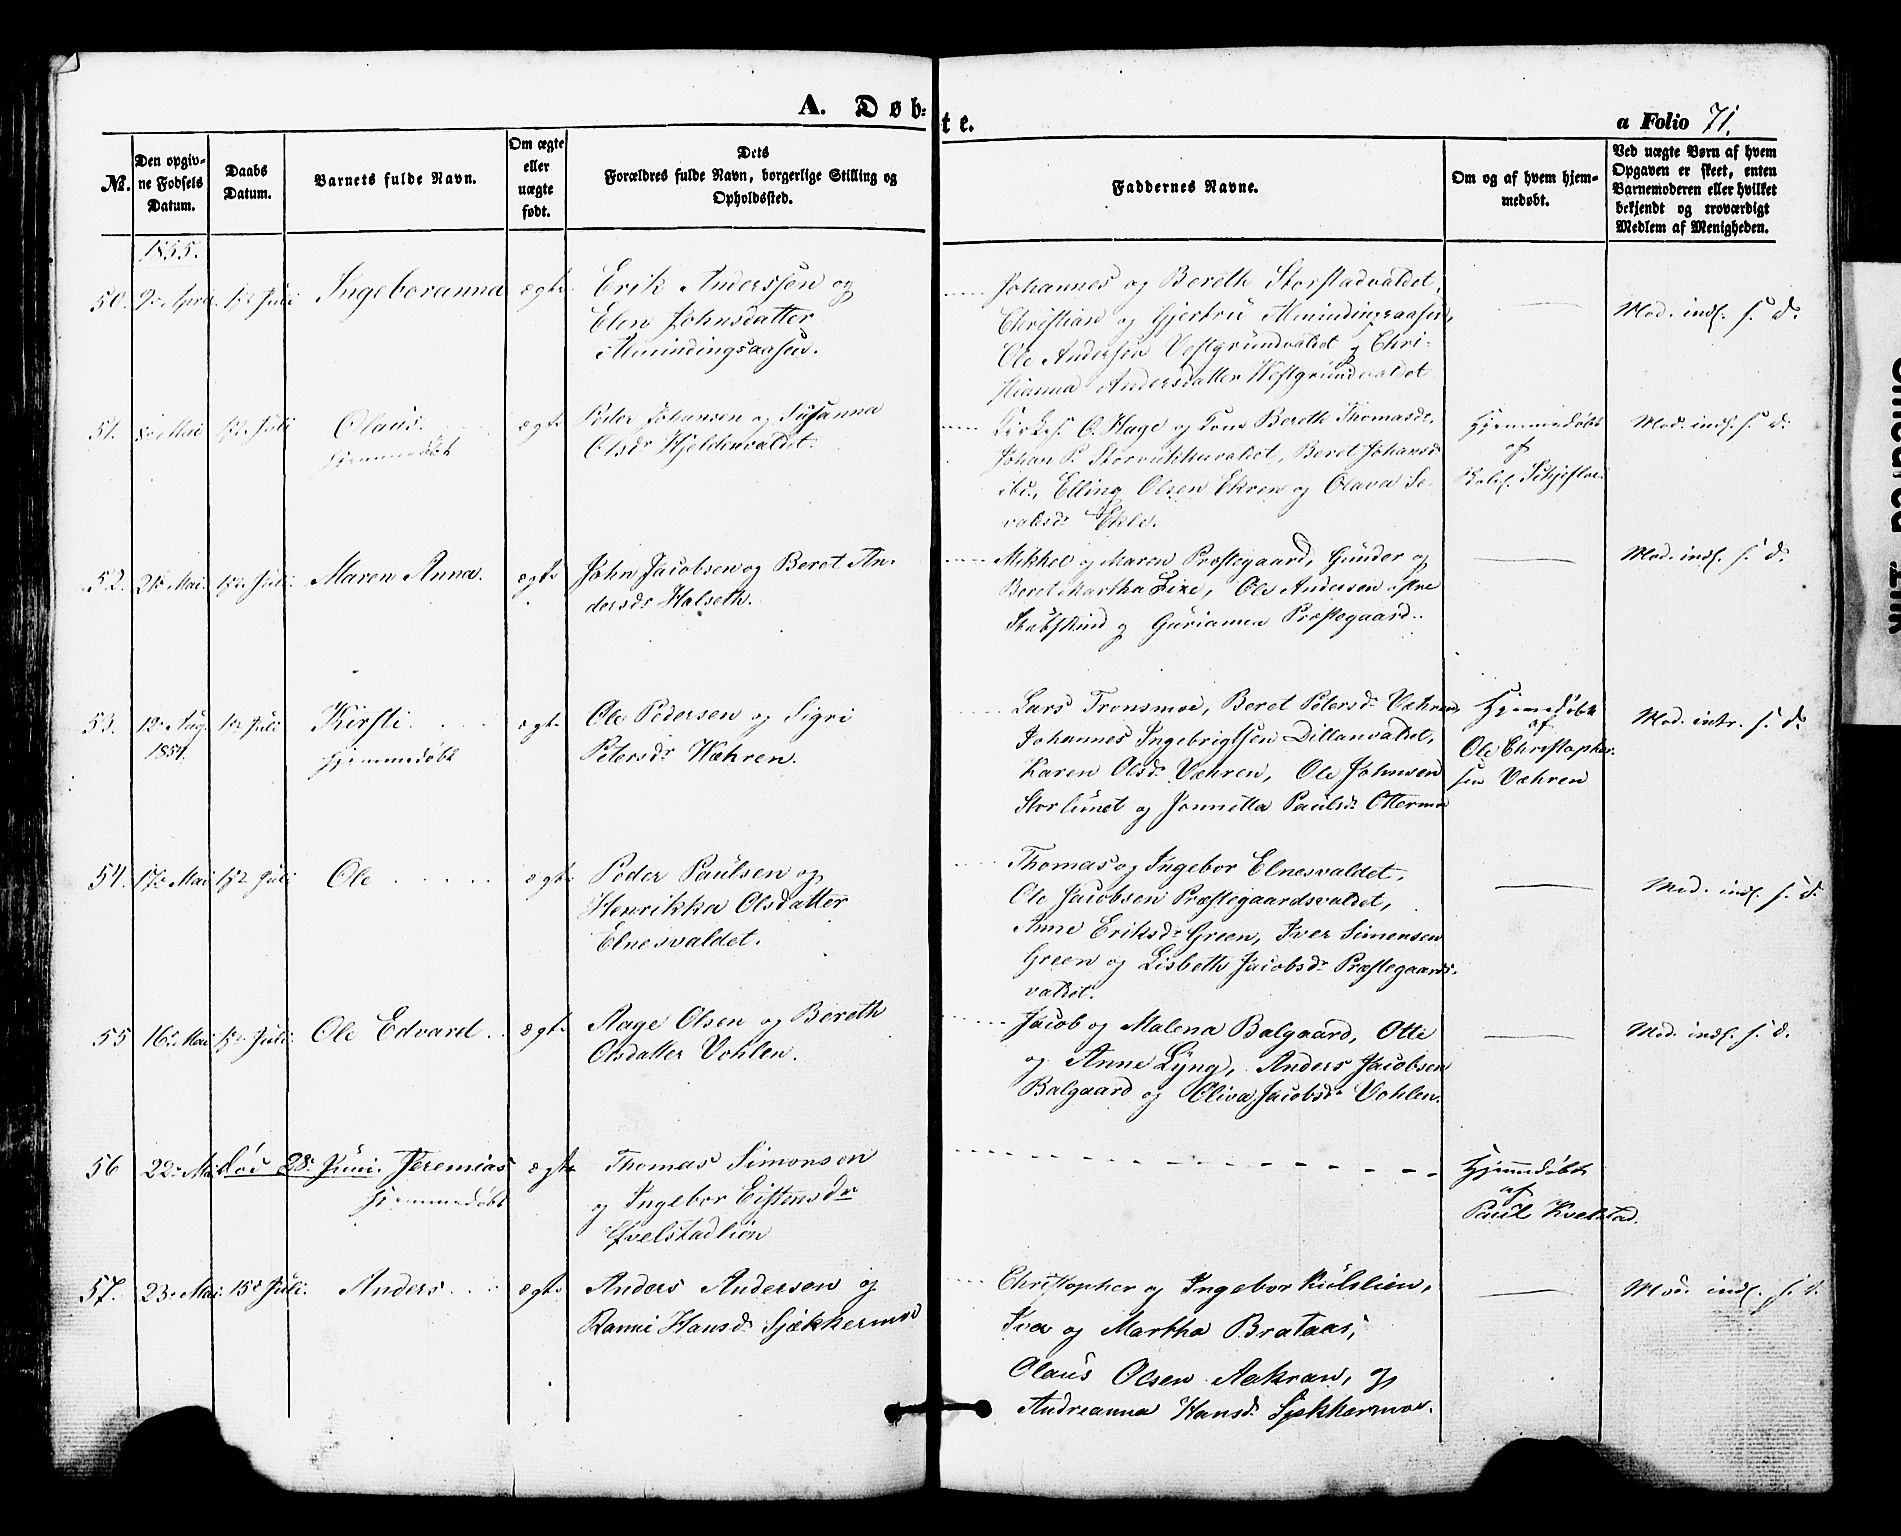 A. Døb=
te.
a Folio 71.
№.
Den opgiv-
ne Fødsels
Datum.
Daabs
Datum.
Barnets fulde Navn.
Om ægte
eller
uægte
født.
Dets
Forældres fulde Navn, borgerlige Stilling og
Opholdssted.
Faddernes Navne.
Om og af hvem hjem-
medøbt.
Ved uægte Børn af hvem
Opgaven er skeet, enten
Barnemoderen eller hvilket
bekjendt og troværdigt
Medlem af Menigheden.
1855.
50. 9de April 1ste Juli Ingeboranna ægte
Erik Anderssen og
Elen Johnsdatter
Almindingsaasen.
Johannes og Bereth Storstadvaldet,
Christian og Gjertru Almindingsaasen,
Ole Andersen Vestgrundvaldet og Chri-
stianna Andersdatter Westgrundvaldet
Mod. indf. s. d.
51. 8de Mai 1ste Juli Olaus. ægte
Hjemmedøbt
Peder Johansen og Susanna
Olsdr Hjeldenvaldet.
Kirkes. O. Hage og Kone Bereth Thomasdr,
Johan P. Storvukkuvaldet, Beret Johansd
ibd., Elling Olsen Ekren og Olava Se-
valdsdr Ekle.
Hjemmedøbt
af
Mod. indf. s. d.
52. 21de Mai. 1ste Juli. Maren Anna. ægte
John Jacobsen og Beret An-
dersdr Halseth.
Mikkel og Maren Præstegaard, Gunder og
Beret Martha Lixe, Ole Andersen østre
Stubskind og Gurianna Præstegaard.
Mod. indf. s. d.
53. 12. Aug. 1ste Juli Kirsti ægte
1854.
Hjemmedøbt
Ole Pedersen og Sigri
Petersdr Wæhren.
Lars Tronsmoe, Beret Petersdr Væhren,
Johannes Ingebrigtsen Dillanvaldet,
Karen Olsdr Væhren, Ole Johnsen
Storlunet og Jonnetta Paulsdr Ottermo
Hjemmedøbt
af
Ole Christopher-
sen Væhren
Mod. intr. s. d.
54. 17de Mai 1ste Juli Ole ægte
Peder Paulsen og
Henrikka Olsdatter
Elnesvaldet.
Thomas og Ingebor Elnesvaldet,
Ole Jacobsen Præstegaardsvaldet,
Anne Eriksdr Green, Iver Simensen
Green og Lisbeth Jacobsdr Præstegaards-
valdet.
Mod. indf. s. d.
55 16de Mai 1ste Juli. Ole Edvard ægte
Aage Olsen og Bereth
Olsdatter Vohlen.
Jacob og Malena Balgaard, Otte
og Anne Lyng, Anders Jacobsen
Balgaard og Oliva Jacobsdr Vohlen.
Mod. indf. s. d.
56 22de Mai død 28de Juni. Jeremias ægte
Hjemmedøbt
Thomas Simonsen
og Ingebor Eistensdr
Qvelstadlien
Hjemmedøbt
af
Paul Kvelstad.
57. 23de Mai 15de Juli. Anders ægte
Anders Andersen og
Ranni Hansdr Sjækkermoe
Christopher og Ingebor Kulslien,
Iver og Martha Brataas,
Olaus Olsen Aakran, og
Andreanna Hansdr Sjækkermoe.
Mod. indf. s. d.